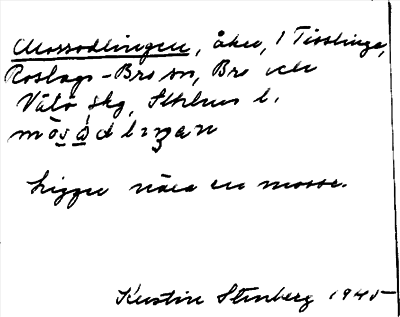 Mossodlingen, åker, 1 Tisslinge,
Roslags-Bro sn, Bro och
Vätö skg, Sthlms l.
mòsòdlıŋən
Ligger nära en mosse.
Kerstin Stenberg 1945